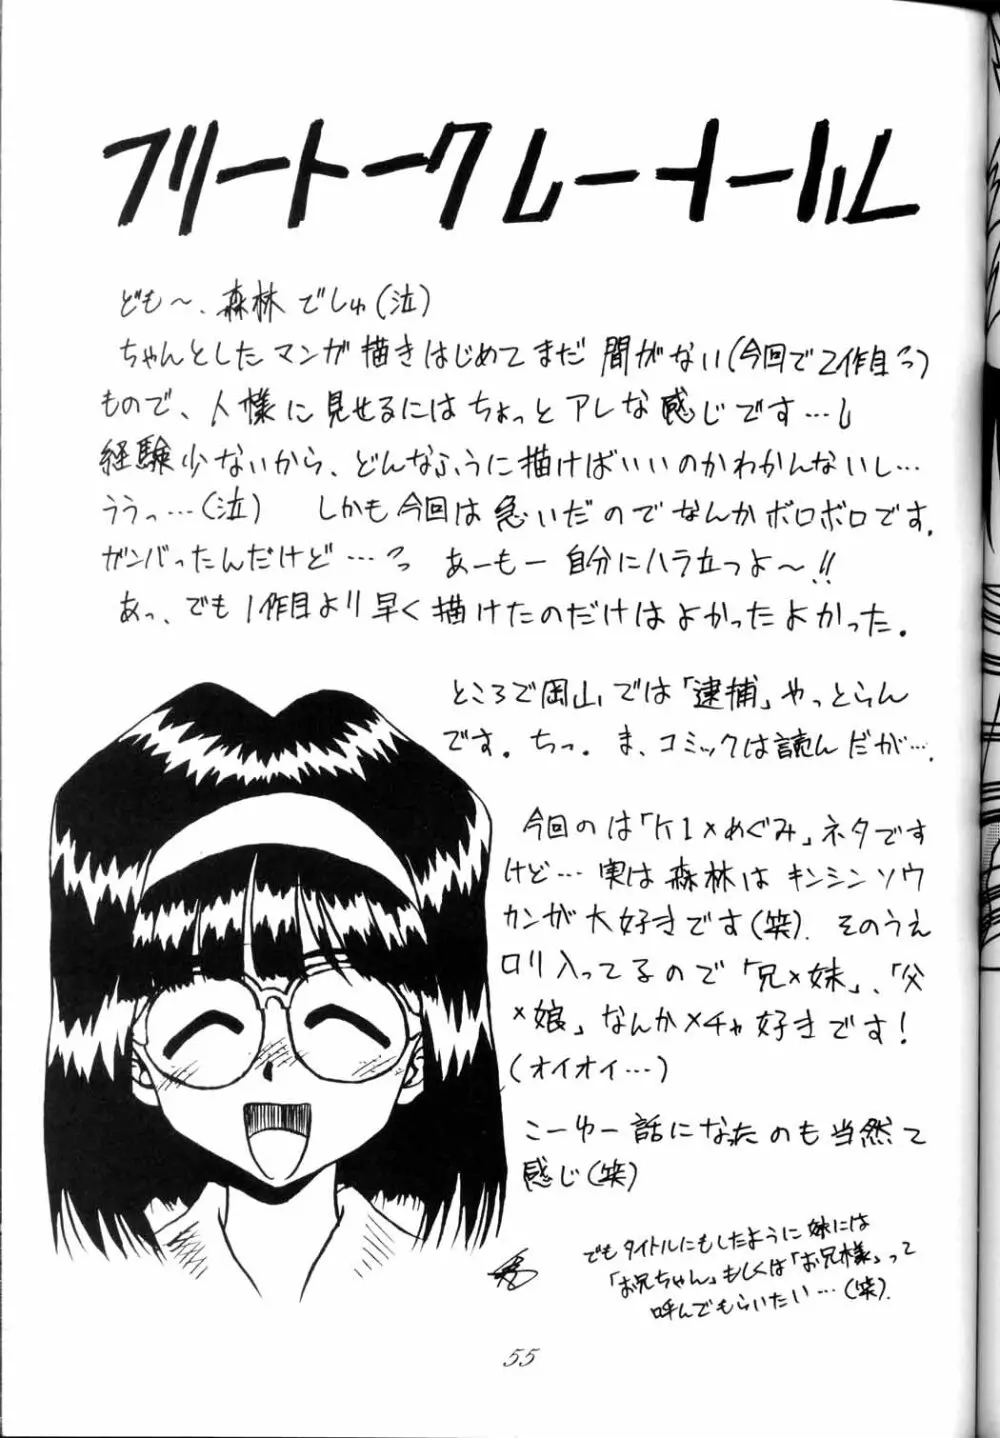 フリートークしーイール
ども～、森林でしゅ(泣)
ちゃんとしたマンガ描きはじめてまだ間がない(今回で2作目っ)
もので、人様に見せるにはちょっとアレな感じです…
経験少ないから、どんなふうに描けばいいのかわかんないし…
ううっ…(泣) しかも今回は急いだのでなんかボロボロです。
ガンバったんだけど…っ あーもー自分にハラ立つよ～!!
あっ、でも1作目より早く描けたのだけはよかったよかった。
ところで岡山では「逮捕」やっとらん
です。ちっ。ま、コミックは読んだが…。
今回のは「K1×めぐみ」ネタです
けど… 実は森林はキンシンソウ
カンが大好きです(笑)。そのうえ
ロリ入ってるので「兄×妹」、「父
×娘」なんかメチャ好きです!
(オイオイ…)
こーゆー話になったのも当然て
感じ(笑)
でもタイトルにもしたように妹には
「お兄ちゃん」もしくは「お兄様」って
呼んでもらいたい…(笑)。
55